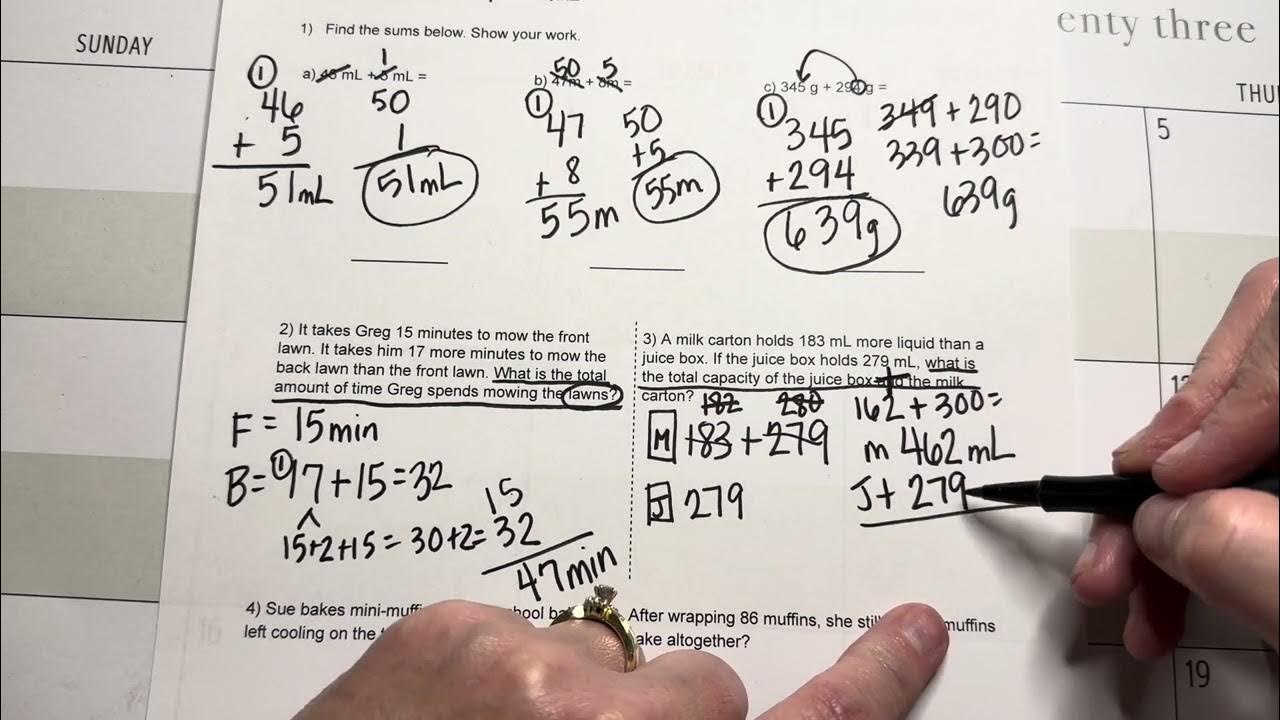 SUNDAY
enty three
THU
5
12
19
1) Find the sums below. Show your work.
1
a) 46 mL + 5 mL =
1
46
+ 5
51mL
50
1
51mL
50 5
b) 47m + 8m =
1
47
+ 8
55m
50
+5
55m
c) 345 g + 294 g =
1
345
+294
639g
349 + 290
339 + 300 =
639g
2) It takes Greg 15 minutes to mow the front
lawn. It takes him 17 more minutes to mow the
back lawn than the front lawn. What is the total
amount of time Greg spends mowing the lawns?
F = 15min
B = 17 + 15 = 32
15+2+15 = 30+2=
15
32
47min
3) A milk carton holds 183 mL more liquid than a
juice box. If the juice box holds 279 mL, what is
the total capacity of the juice box and the milk
carton?
182 280
M 183 + 279
J 279
162 + 300 =
m 462 mL
J + 279
4) Sue bakes mini-muff hool ba After wrapping 86 muffins, she stil muffins
left cooling on the ake altogether?